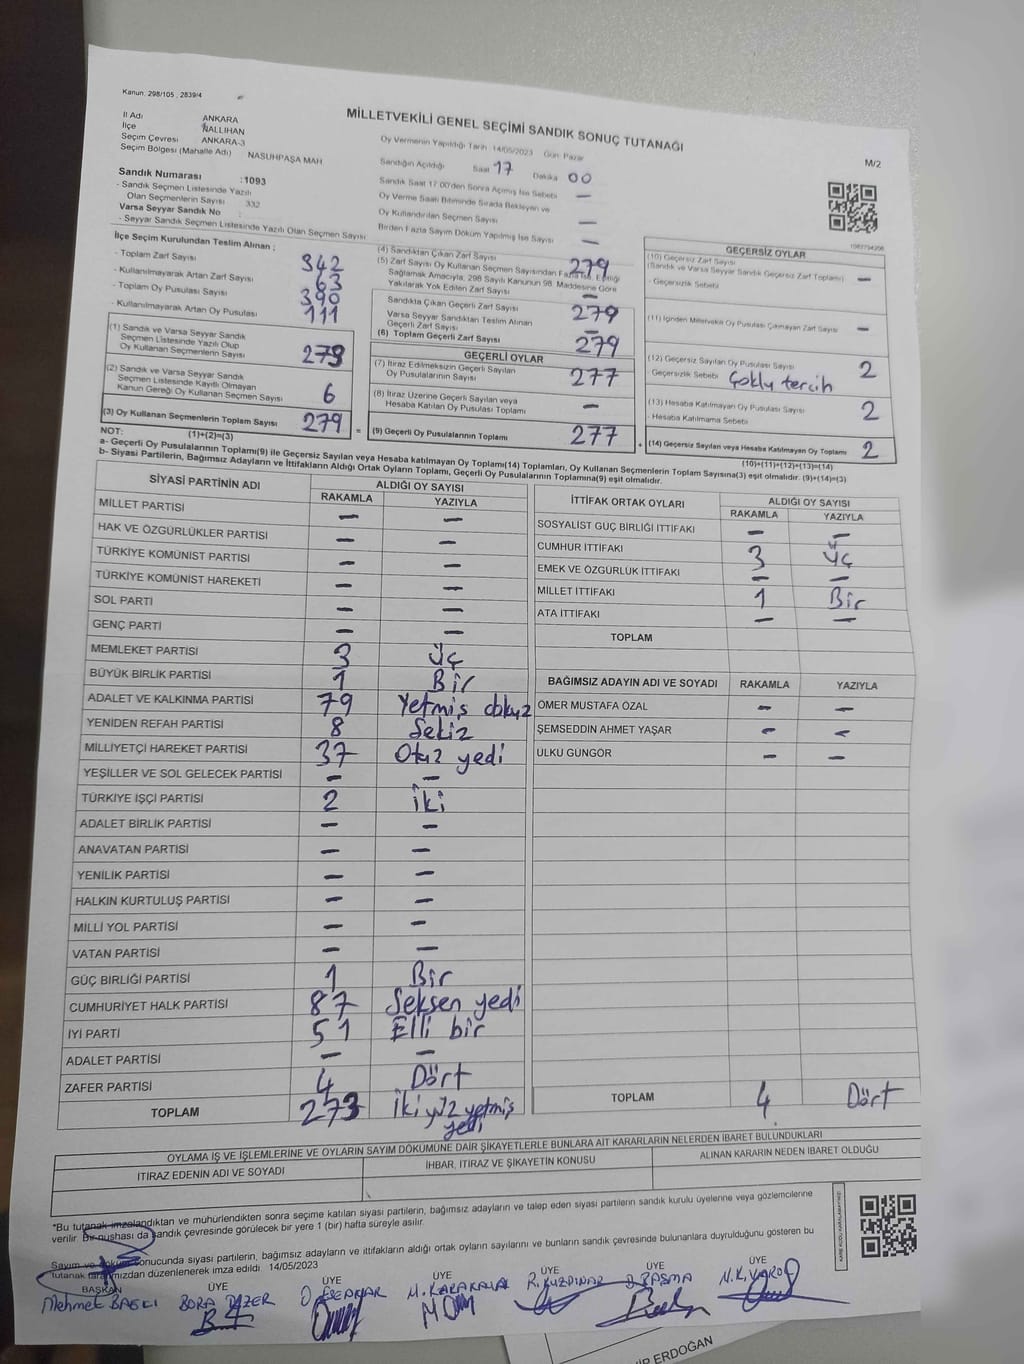 Kanun: 298/105 , 2839/4
MİLLETVEKİLİ GENEL SEÇİMİ SANDIK SONUÇ TUTANAĞI
M/2
İl Adı ANKARA
İlçe NALLIHAN
Seçim Çevresi ANKARA-3
Seçim Bölgesi (Mahalle Adı) NASUHPAŞA MAH
Sandık Numarası :1093
- Sandık Seçmen Listesinde Yazılı
Olan Seçmenlerin Sayısı 332
Varsa Seyyar Sandık No
- Seyyar Sandık Seçmen Listesinde Yazılı Olan Seçmen Sayısı
Oy Vermenin Yapıldığı Tarih: 14/05/2023 Gün: Pazar
Sandığın Açıldığı Saat 17 Dakika 00
Sandık Saat 17:00'den Sonra Açılmış İse Sebebi –
Oy Verme Saati Bitiminde Sırada Bekleyen ve
Oy Kullandırılan Seçmen Sayısı –
Birden Fazla Sayım Döküm Yapılmış İse Sayısı –
İlçe Seçim Kurulundan Teslim Alınan ;
- Toplam Zarf Sayısı 342
- Kullanılmayarak Artan Zarf Sayısı 63
- Toplam Oy Pusulası Sayısı 390
- Kullanılmayarak Artan Oy Pusulası 111
(1) Sandık ve Varsa Seyyar Sandık
Seçmen Listesinde Yazılı Olup
Oy Kullanan Seçmenlerin Sayısı
(2) Sandık ve Varsa Seyyar Sandık
Seçmen Listesinde Kayıtlı Olmayan
Kanun Gereği Oy Kullanan Seçmen Sayısı 6
(3) Oy Kullanan Seçmenlerin Toplam Sayısı 279
(1)+(2)=(3)
(4) Sandıktan Çıkan Zarf Sayısı 279
(5) Zarf Sayısı Oy Kullanan Seçmen Sayısından Fazla İse, Eşitliği
Sağlamak Amacıyla, 298 Sayılı Kanunun 98. Maddesine Göre
Yakılarak Yok Edilen Zarf Sayısı –
Sandıkta Çıkan Geçerli Zarf Sayısı 279
Varsa Seyyar Sandıktan Teslim Alınan
Geçerli Zarf Sayısı –
(6) Toplam Geçerli Zarf Sayısı 279
GEÇERLİ OYLAR
(7) İtiraz Edilmeksizin Geçerli Sayılan
Oy Pusulalarının Sayısı 277
(8) İtiraz Üzerine Geçerli Sayılan veya
Hesaba Katılan Oy Pusulası Toplamı –
= (9) Geçerli Oy Pusulalarının Toplamı 277
GEÇERSİZ OYLAR
(10) Geçersiz Zarf Sayısı
(Sandık ve Varsa Seyyar Sandık Geçersiz Zarf Toplamı) –
- Geçersizlik Sebebi
(11) İçinden Milletvekili Oy Pusulası Çıkmayan Zarf Sayısı –
(12) Geçersiz Sayılan Oy Pusulası Sayısı 2
Geçersizlik Sebebi Çoklu tercih
(13) Hesaba Katılmayan Oy Pusulası Sayısı 2
- Hesaba Katılmama Sebebi
+ (14) Geçersiz Sayılan veya Hesaba Katılmayan Oy Toplamı 2
(10)+(11)+(12)+(13)=(14)
NOT:
a- Geçerli Oy Pusulalarının Toplamı(9) ile Geçersiz Sayılan veya Hesaba katılmayan Oy Toplamı(14) Toplamları, Oy Kullanan Seçmenlerin Toplam Sayısına(3) eşit olmalıdır. (9)+(14)=(3)
b- Siyasi Partilerin, Bağımsız Adayların ve İttifakların Aldığı Ortak Oyların Toplamı, Geçerli Oy Pusulalarının Toplamına(9) eşit olmalıdır.
SİYASİ PARTİNİN ADI ALDIĞI OY SAYISI
RAKAMLA YAZIYLA
MİLLET PARTİSİ – –
HAK VE ÖZGÜRLÜKLER PARTİSİ – –
TÜRKİYE KOMÜNİST PARTİSİ – –
TÜRKİYE KOMÜNİST HAREKETİ – –
SOL PARTİ – –
GENÇ PARTİ – –
MEMLEKET PARTİSİ 3 Üç
BÜYÜK BİRLİK PARTİSİ 1 Bir
ADALET VE KALKINMA PARTİSİ 79 Yetmiş dokuz
YENİDEN REFAH PARTİSİ 8 Sekiz
MİLLİYETÇİ HAREKET PARTİSİ 37 Otuz yedi
YEŞİLLER VE SOL GELECEK PARTİSİ – –
TÜRKİYE İŞÇİ PARTİSİ 2 İki
ADALET BİRLİK PARTİSİ – –
ANAVATAN PARTİSİ – –
YENİLİK PARTİSİ – –
HALKIN KURTULUŞ PARTİSİ – –
MİLLİ YOL PARTİSİ – –
VATAN PARTİSİ – –
GÜÇ BİRLİĞİ PARTİSİ 1 Bir
CUMHURİYET HALK PARTİSİ 87 Seksen yedi
İYİ PARTİ 51 Elli bir
ADALET PARTİSİ – –
ZAFER PARTİSİ 4 Dört
TOPLAM 273 İki yüz yetmiş
yedi
İTTİFAK ORTAK OYLARI ALDIĞI OY SAYISI
RAKAMLA YAZIYLA
SOSYALİST GÜÇ BİRLİĞİ İTTİFAKI – –
CUMHUR İTTİFAKI 3 Üç
EMEK VE ÖZGÜRLÜK İTTİFAKI – –
MİLLET İTTİFAKI 1 Bir
ATA İTTİFAKI – –
TOPLAM
BAĞIMSIZ ADAYIN ADI VE SOYADI RAKAMLA YAZIYLA
ÖMER MUSTAFA ÖZAL – –
ŞEMSEDDİN AHMET YAŞAR – –
ÜLKÜ GÜNGÖR – –
TOPLAM 4 Dört
OYLAMA İŞ VE İŞLEMLERİNE VE OYLARIN SAYIM DÖKÜMÜNE DAİR ŞİKAYETLERLE BUNLARA AİT KARARLARIN NELERDEN İBARET BULUNDUKLARI
İTİRAZ EDENİN ADI VE SOYADI İHBAR, İTİRAZ VE ŞİKAYETİN KONUSU ALINAN KARARIN NEDEN İBARET OLDUĞU
*Bu tutanak imzalandıktan ve mühürlendikten sonra seçime katılan siyasi partilerin, bağımsız adayların ve talep eden siyasi partilerin sandık kurulu üyelerine veya gözlemcilerine
verilir. Bir nüshası da sandık çevresinde görülecek bir yere 1 (bir) hafta süreyle asılır.
Sayım ve döküm sonucunda siyasi partilerin, bağımsız adayların ve ittifakların aldığı ortak oyların sayılarını ve bunların sandık çevresinde bulunanlara duyrulduğunu gösteren bu
tutanak tarafımızdan düzenlenerek imza edildi. 14/05/2023
BAŞKAN ÜYE ÜYE ÜYE ÜYE ÜYE ÜYE
Mehmet BAĞLI BORA M. KARAKAYA R. KUZPINAR
ERDOĞAN